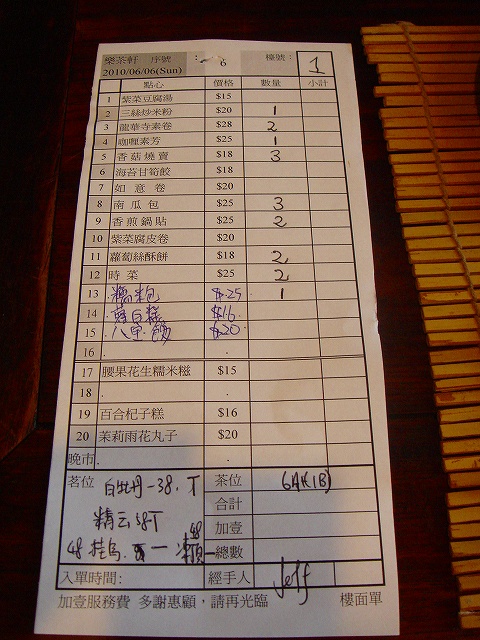 樂茶軒 序號 : 6 檯號: 1
2010/06/06(Sun)
點心 價格 數量 小計
1 紫菜豆腐湯 $15
2 三絲炒米粉 $20 1
3 龍華寺素卷 $28 2
4 咖喱素芳 $25 1
5 香菇燒賣 $18 3
6 海苔甘筍餃 $18
7 如意卷 $20
8 南瓜包 $25 3
9 香煎鍋貼 $25 2
10 紫菜腐皮卷 $20
11 蘿蔔絲酥餅 $18 2
12 時菜 $25 2
13 $25 1
14 $16
15 $20
16
17 腰果花生糯米糍 $15
18
19 百合杞子糕 $16
20 茉莉雨花丸子 $20
晚市
茗位 白牡丹-38.T 茶位
合計
加壹
總數
入單時間: 經手人 Jeff
加壹服務費 多謝惠顧,請再光臨 樓面單